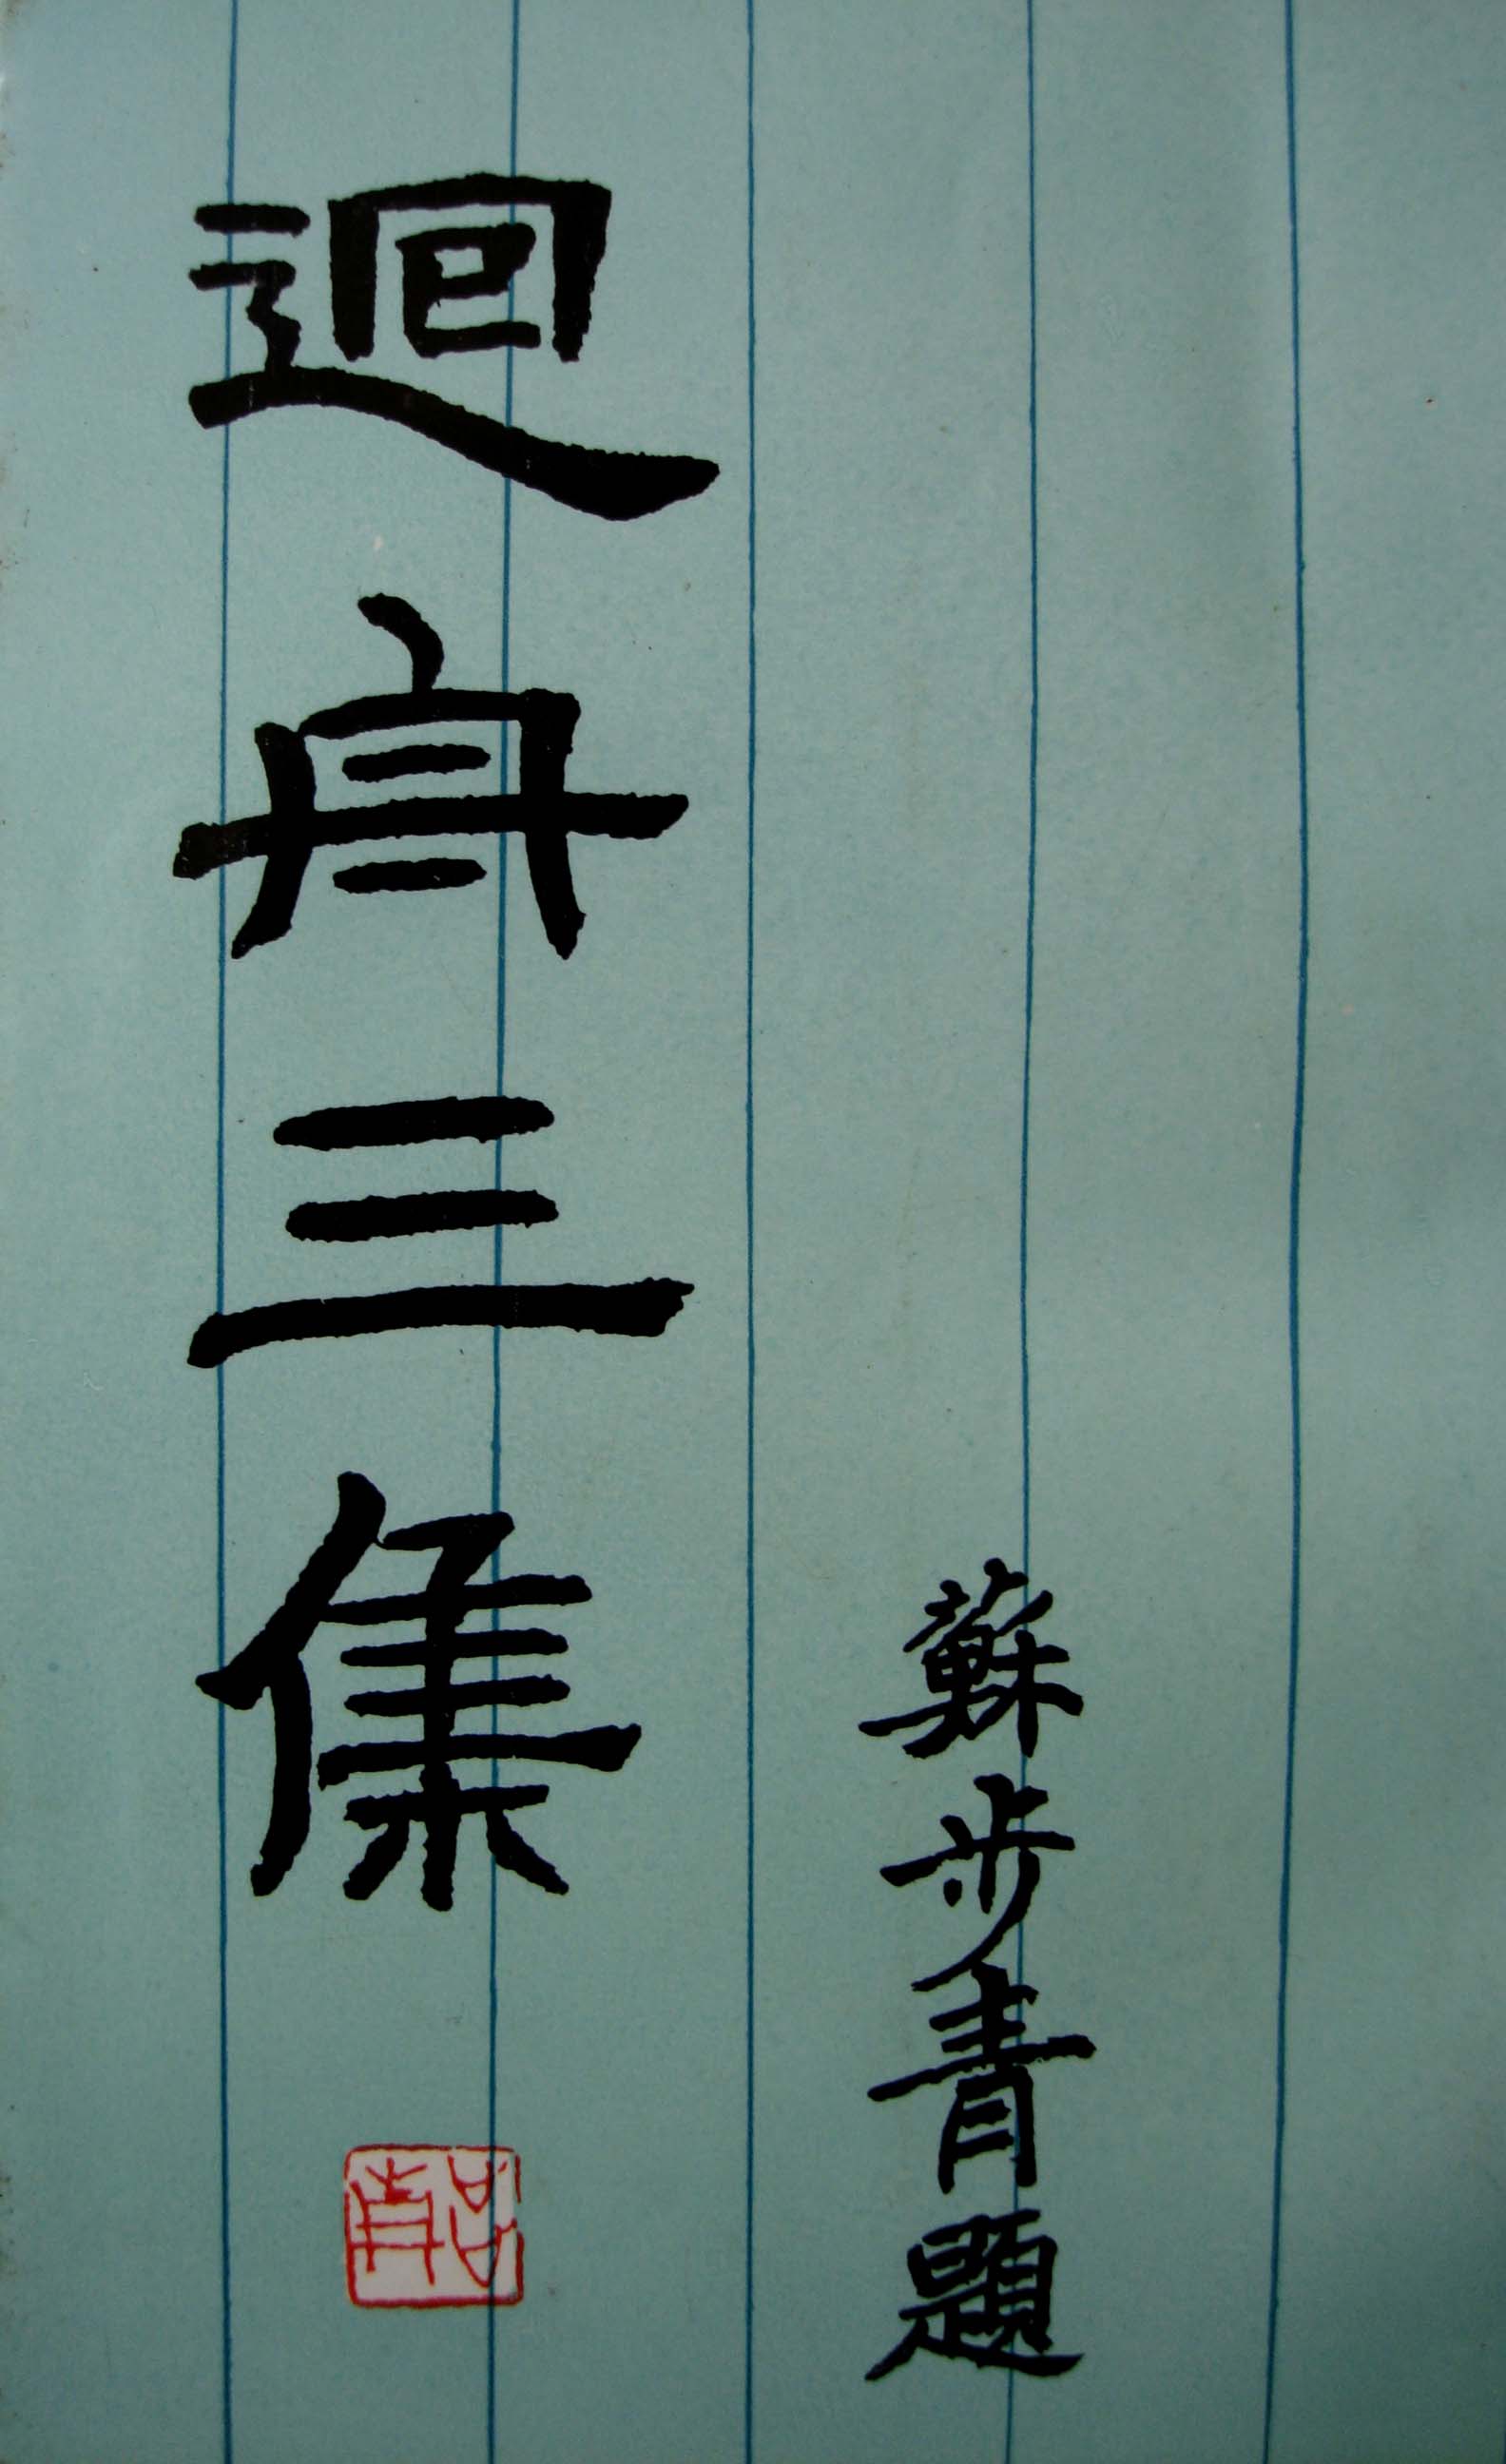 迴舟三集
蘇步青題